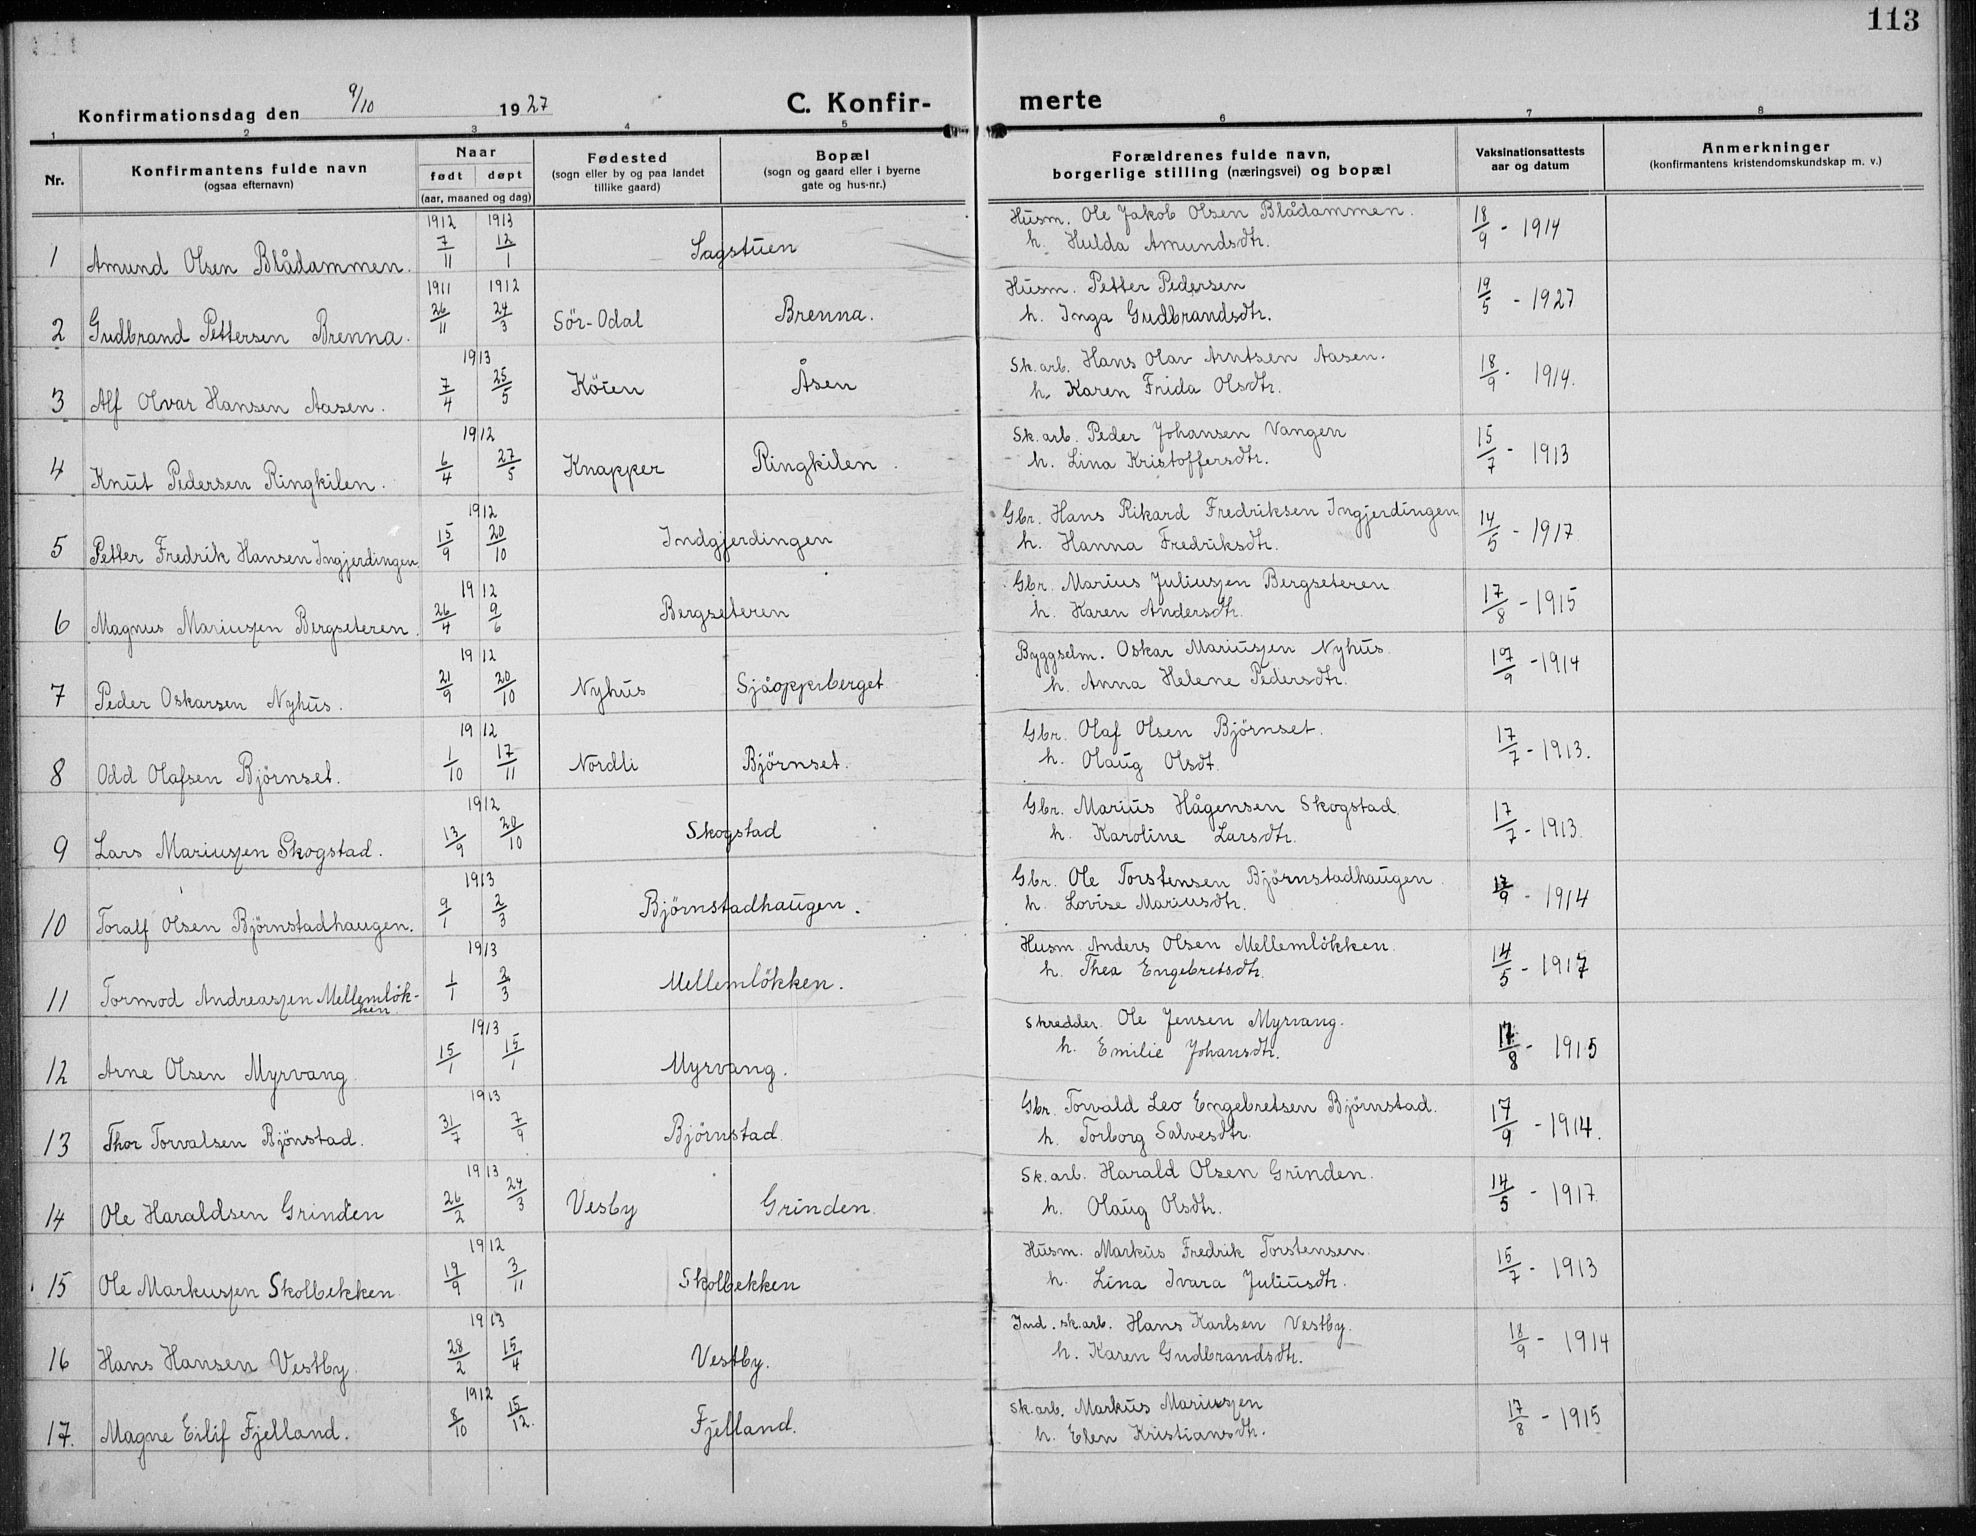 113
Konfirmationsdag den 9/10 1927
C. Konfir- merte
1 2 3 4 5 6 7 8
Nr.
Konfirmantens fulde navn
(ogsaa efternavn)
Naar
født døpt
(aar, maaned og dag)
Fødested
(sogn eller by og paa landet
tillike gaard)
Bopæl
(sogn og gaard eller i byerne
gate og hus-nr.)
Forældrenes fulde navn,
borgerlige stilling (næringsvei) og bopæl
Vaksinationsattests
aar og datum
Anmerkninger
(konfirmantens kristendomskundskap m. v.)
1912 1913 Husm. Ole Jakob Olsen Blådammen.
1 Amund Olsen Blådammen. 7/11 12/1 Sagstuen h. Hulda Amundsdtr. 18/9 - 1914
1911 1912 Husm. Petter Pedersen
2 Gudbrand Pettersen Brenna. 26/11 24/3 Sör-Odal Brenna. h. Inga Gudbrandsdtr. 19/5 - 1927
1913 Sk. arb. Hans Olav Arntsen Aasen.
3 Alf Olvar Hansen Aasen. 7/4 25/5 Köien Åsen h. Karen Frida Olsdtr. 18/9 - 1914.
1912 Sk. arb. Peder Johansen Vangen
4 Knut Pedersen Ringkilen. 6/4 27/5 Knapper Ringkilen. h. Lina Kristoffersdtr. 15/7 - 1913
1912 Gbr. Hans Rikard Fredriksen Ingjerdingen
5 Petter Fredrik Hansen Ingjerdingen 15/9 20/10 Indgjerdingen h. Hanna Fredriksdtr. 14/5 - 1917
1912 Gbr. Marius Juliussen Bergseteren
6 Magnus Mariussen Bergseteren. 26/4 9/6 Bergseteren h. Karen Andersdtr. 17/8 - 1915
1912 Byggselm. Oskar Mariussen Nyhus.
7 Peder Oskarsen Nyhus. 21/9 20/10 Nyhus Sjåopperberget h. Anna Helene Pedersdtr. 17/9 - 1914
1912 Gbr. Olaf Olsen Björnset.
8 Odd Olafsen Björnset. 1/10 17/11 Nordli Björnset. h. Olaug Olsdt. 17/7 - 1913.
1912 Gbr. Marius Hågensen Skogstad
9 Lars Mariussen Skogstad. 13/9 20/10 Skogstad h. Karoline Larsdtr. 17/7 - 1913.
1913 Gbr. Ole Torstensen Björnstadhaugen.
10 Toralf Olsen Björnstadhaugen. 9/1 2/3 Björnstadhaugen. h. Lovise Mariusdtr. 17/9 - 1914
1913 Husm. Anders Olsen Mellemlökken.
11 Tormod Andreassen Mellemlök- 1/1 2/3 Mellemlökken. h. Thea Engebretsdtr. 14/5 - 1917
ken.
1913 Skredder. Ole Jensen Myrvang.
12 Arne Olsen Myrvang 15/1 15/1 Myrvang. h. Emilie Johansdtr. 17/8 - 1915
1913 Gbr. Torvald Leo Engebretsen Björnstad.
13 Thor Torvalsen Bjönstad. 31/7 7/9 Björnstad. h. Torborg Salvesdtr. 17/9 - 1914.
1913 Sk. arb. Harald Olsen Grinden.
14 Ole Haraldsen Grinden 26/2 24/3 Vesby Grinden. h. Olaug Olsdtr. 14/5 - 1917.
1912 Husm. Markus Fredrik Torstensen.
15 Ole Markussen Skolbekken. 19/9 3/11 Skolbekken h. Lina Ivara Juliusdtr. 15/7 - 1913
1913 Ind. sk. arb. Hans Karlsen Vestby.
16 Hans Hansen Vestby. 28/2 15/4 Vestby. h. Karen Gudbrandsdtr. 18/9 - 1914
1912 Sk. arb. Markus Mariussen
17. Magne Eilif Fjelland. 8/10 15/12. Fjelland. h. Elen Kristiansdtr. 17/8 - 1915